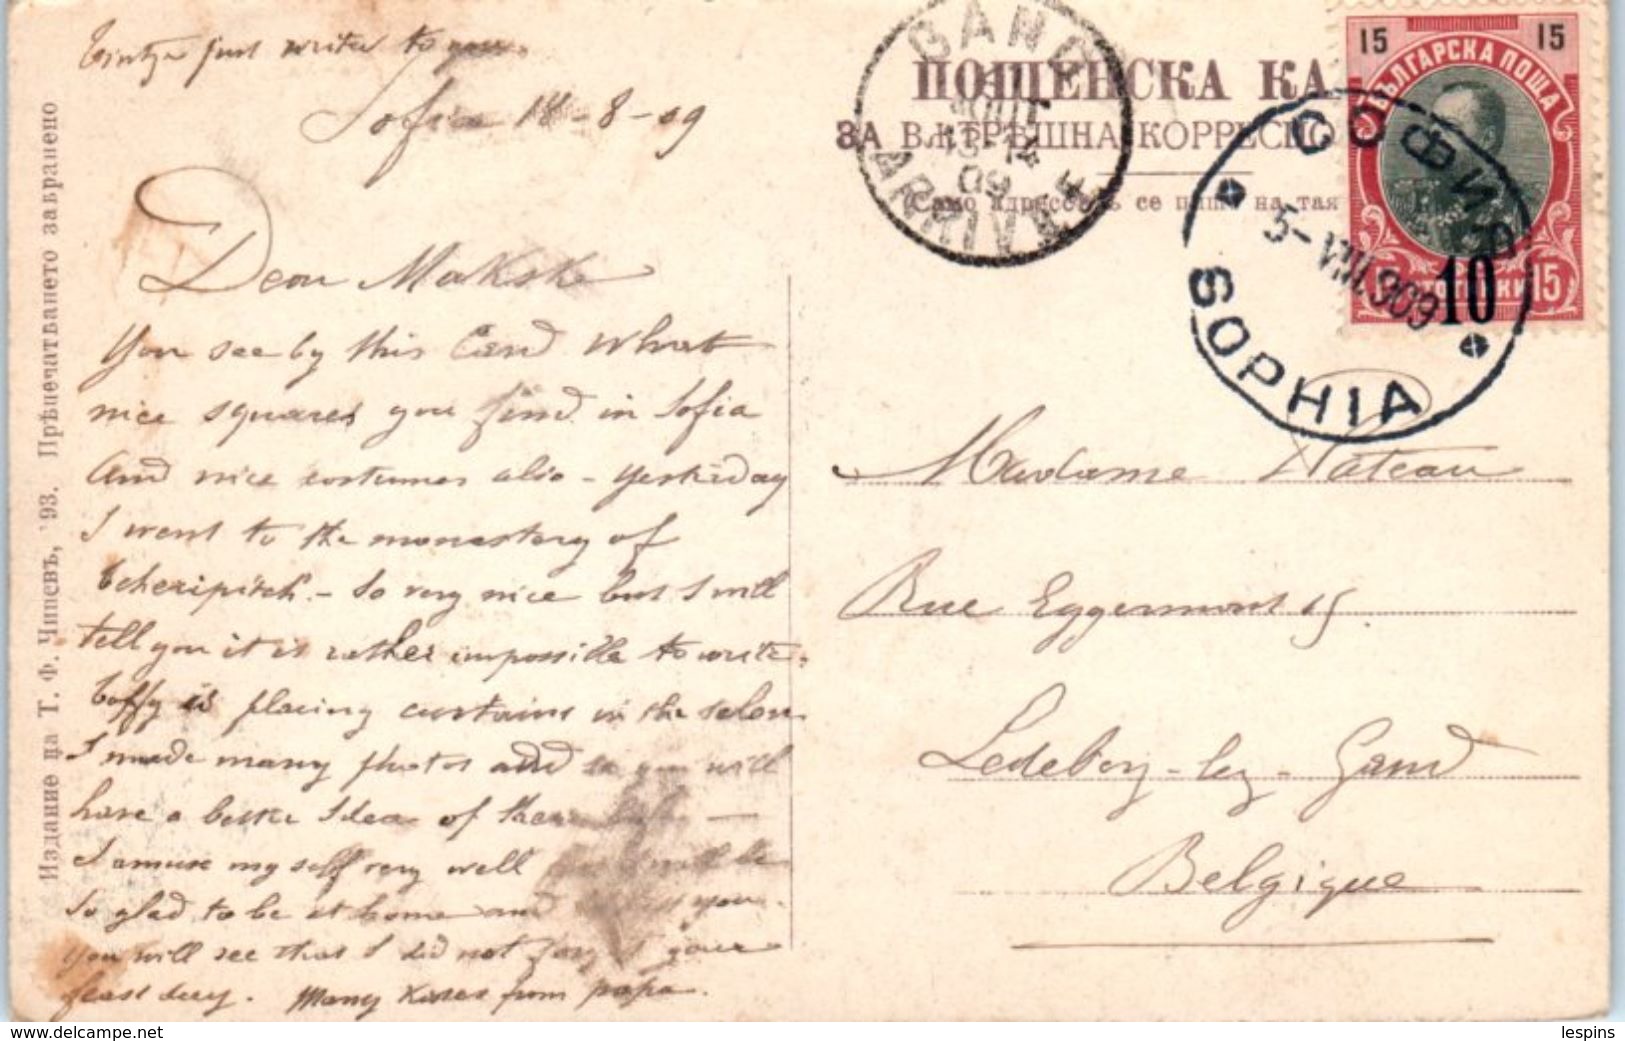 just write to
Sofia 18-8-09
Dear
You see by this Card what
nice squares you find in Sofia
And nice costumes also - yesterday
I went to the monastery of
tcheripitch - So very nice but I will
tell you it is rather impossible to write.
is placing curtains in the salon
I made many photos and so you will
have a better Idea of them
I amuse my self very well will be
So glad to be at home and you.
You will see that I did not your
feast day. Many Kisses from papa.
Издание на Т. Ф. Чипевъ, '93. Прѣпечатването забранено
ПОЩЕНСКА КА
ЗА ВѪТРѢШНА КОРРЕСПО
Само се на тая
GAND
13-14
09
ARRIVÉE
15 15
БЪЛГАРСКА ПОЩА
15
10
СОФИЯ
5-VIII.909
SOPHIA
Madame Nateau
Rue Eggermont 15
Ledeberg-lez-Gand
Belgique
lespins